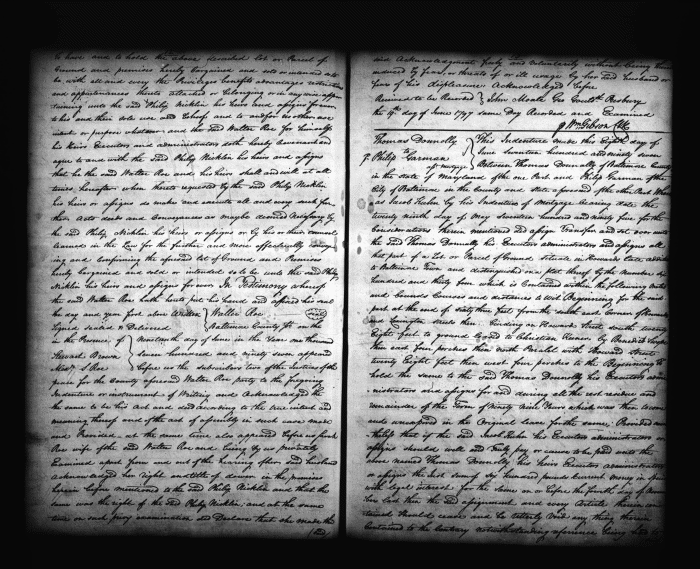 to have and to hold the above described lot or Parcel of
Ground and premises hereby bargained and sold or intended so to
be, with all and every the Priviledges benefits advantages
and appurtenances thereto attached or belonging or in anywise apper
taining unto the said Philip Nicklin his heirs and assigns forever
to his and their sole use and behoof and to and for no other use
intent or purpose whatsoever and the said Walter Roe for himself
his Heirs Executors and administrators doth hereby Covenant and
agree to and with the said Philip Nicklin his heirs and assigns
that he the said Walter Roe and his Heirs shall and will at all
times hereafter when thereto requested by the said Philip Nicklin
his heirs or assigns do make and execute all and every such further
other Acts deeds and Conveyances as maybe devised
the said Philip Nicklin his heirs or assigns or by his or their Council
learned in the Law for the further and more effectually
ing and confirming the aforesaid lot of Ground and Premises
hereby bargained and sold or intended so to be unto the said Philip
Nicklin his Heirs and assigns for ever In Testimony whereof
the said Walter Roe hath hereto put his hand and affixed his seal
the day and year first above Written Walter Roe
Signed sealed & Delivered Baltimore County fs on the
in the Presence of nineteenth day of June in the Year one thousand
Stewart Brown seven hundred and ninety seven appeared
S Roe Before us the subscribers two of the Justices of the
peace for the County aforesaid Walter Roe party to the foregoing
Indenture or instrument of Writing and Acknowledged the
the same to be his Act and deed according to the true intent and
meaning thereof and of the act of assembly in such case made
and Provided at the same time also appeared before us
Roe wife of the said Walter Roe and being by us privately
Examined apart from and out of the hearing of her said husband
acknowledged her Right and title of dower in the premises
herein before mentioned to the said Philip Nicklin and that the
same was the right of the said Philip Nicklin, and at the same
time on such privy examination did Declare that she made the
said Acknowledgment freely and voluntarily without being
induced by fears or threats of or ill usage by her said husband or
fear of his displeasure Acknowledged before
Received to be Recorded John Moale Geo Gouldsh. Presbury
the day of June 1797 same Day Recorded and Examined
Wm Gibson Clk
Thomas Donnelly This Indenture made this Eighth day of
To June seventeen hundred and ninety seven
Philip Garman Between Thomas Donnelly of Baltimore County
in the state of Maryland of the one Part and Philip Garman of the
City of Baltimore in the County and state aforesaid of the other Part Whereas
Jacob by his Indenture of Mortgage bearing date the
twenty ninth day of May seventeen hundred and ninety five for the
considerations therein mentioned did assign Transfer and set over unto
the said Thomas Donnelly his Executors administrators and assigns all
that part of a Lot or Parcel of Ground situate in Howards late addition
to Baltimore Town and distinguished on a plat thereof by the Number six
hundred and thirty four which is Contained within the following metes
and bounds Courses and distances to wit Beginning for the said
part at the end of sixty three feet from the south east Corner of Howard
and Streets then binding on Howard Street south twenty
Eight feet to ground leased to Christian by Benedict
then east four perches then north Paralel with Howard Street
twenty Eight feet then west four perches to the Beginning To
hold the same to the said Thomas Donnelly his Executors admi
nistrators and assigns for and during all the rest residue and
remainder of the Term of Ninety Nine Years which was then to come
and unexpired in the Original Lease for the same: Provided never
theless that if the said Jacob his Executors administrators or
assigns should well and truly pay or cause to be paid unto the
above named Thomas Donnelly his Heirs Executors administrators
or assigns the just sum of Six hundred pounds Current money in
with legal interest for the same on or before the fourth day of
then last then the said assignment and every article therein con
tained should cease and be utterly void any thing therein
Contained to the Contrary notwithstanding reference being had to